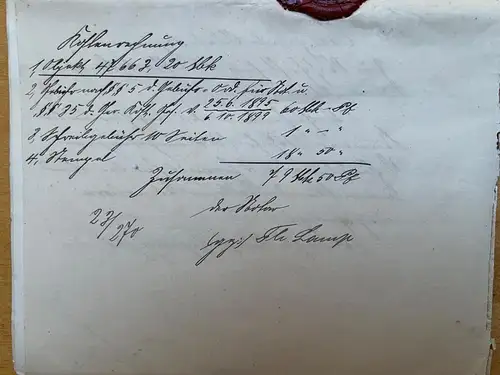 Kostenrechnung
1, Objekt 47662, 20 Mk
2, Gebühr nach §§ 5 d. Gebühr. Ord. für Not. u.
§§ 35 d. Ger. Kost. Ges. v. 25.6.1895 / 6.10.1899 60 Mk – Pf
3, Schreibgebühr 10 Seiten 1 „ – „
4, Stempel 18 „ 50 „
Zusammen 79 Mk 50 Pf
der Notar
23/270
gez.